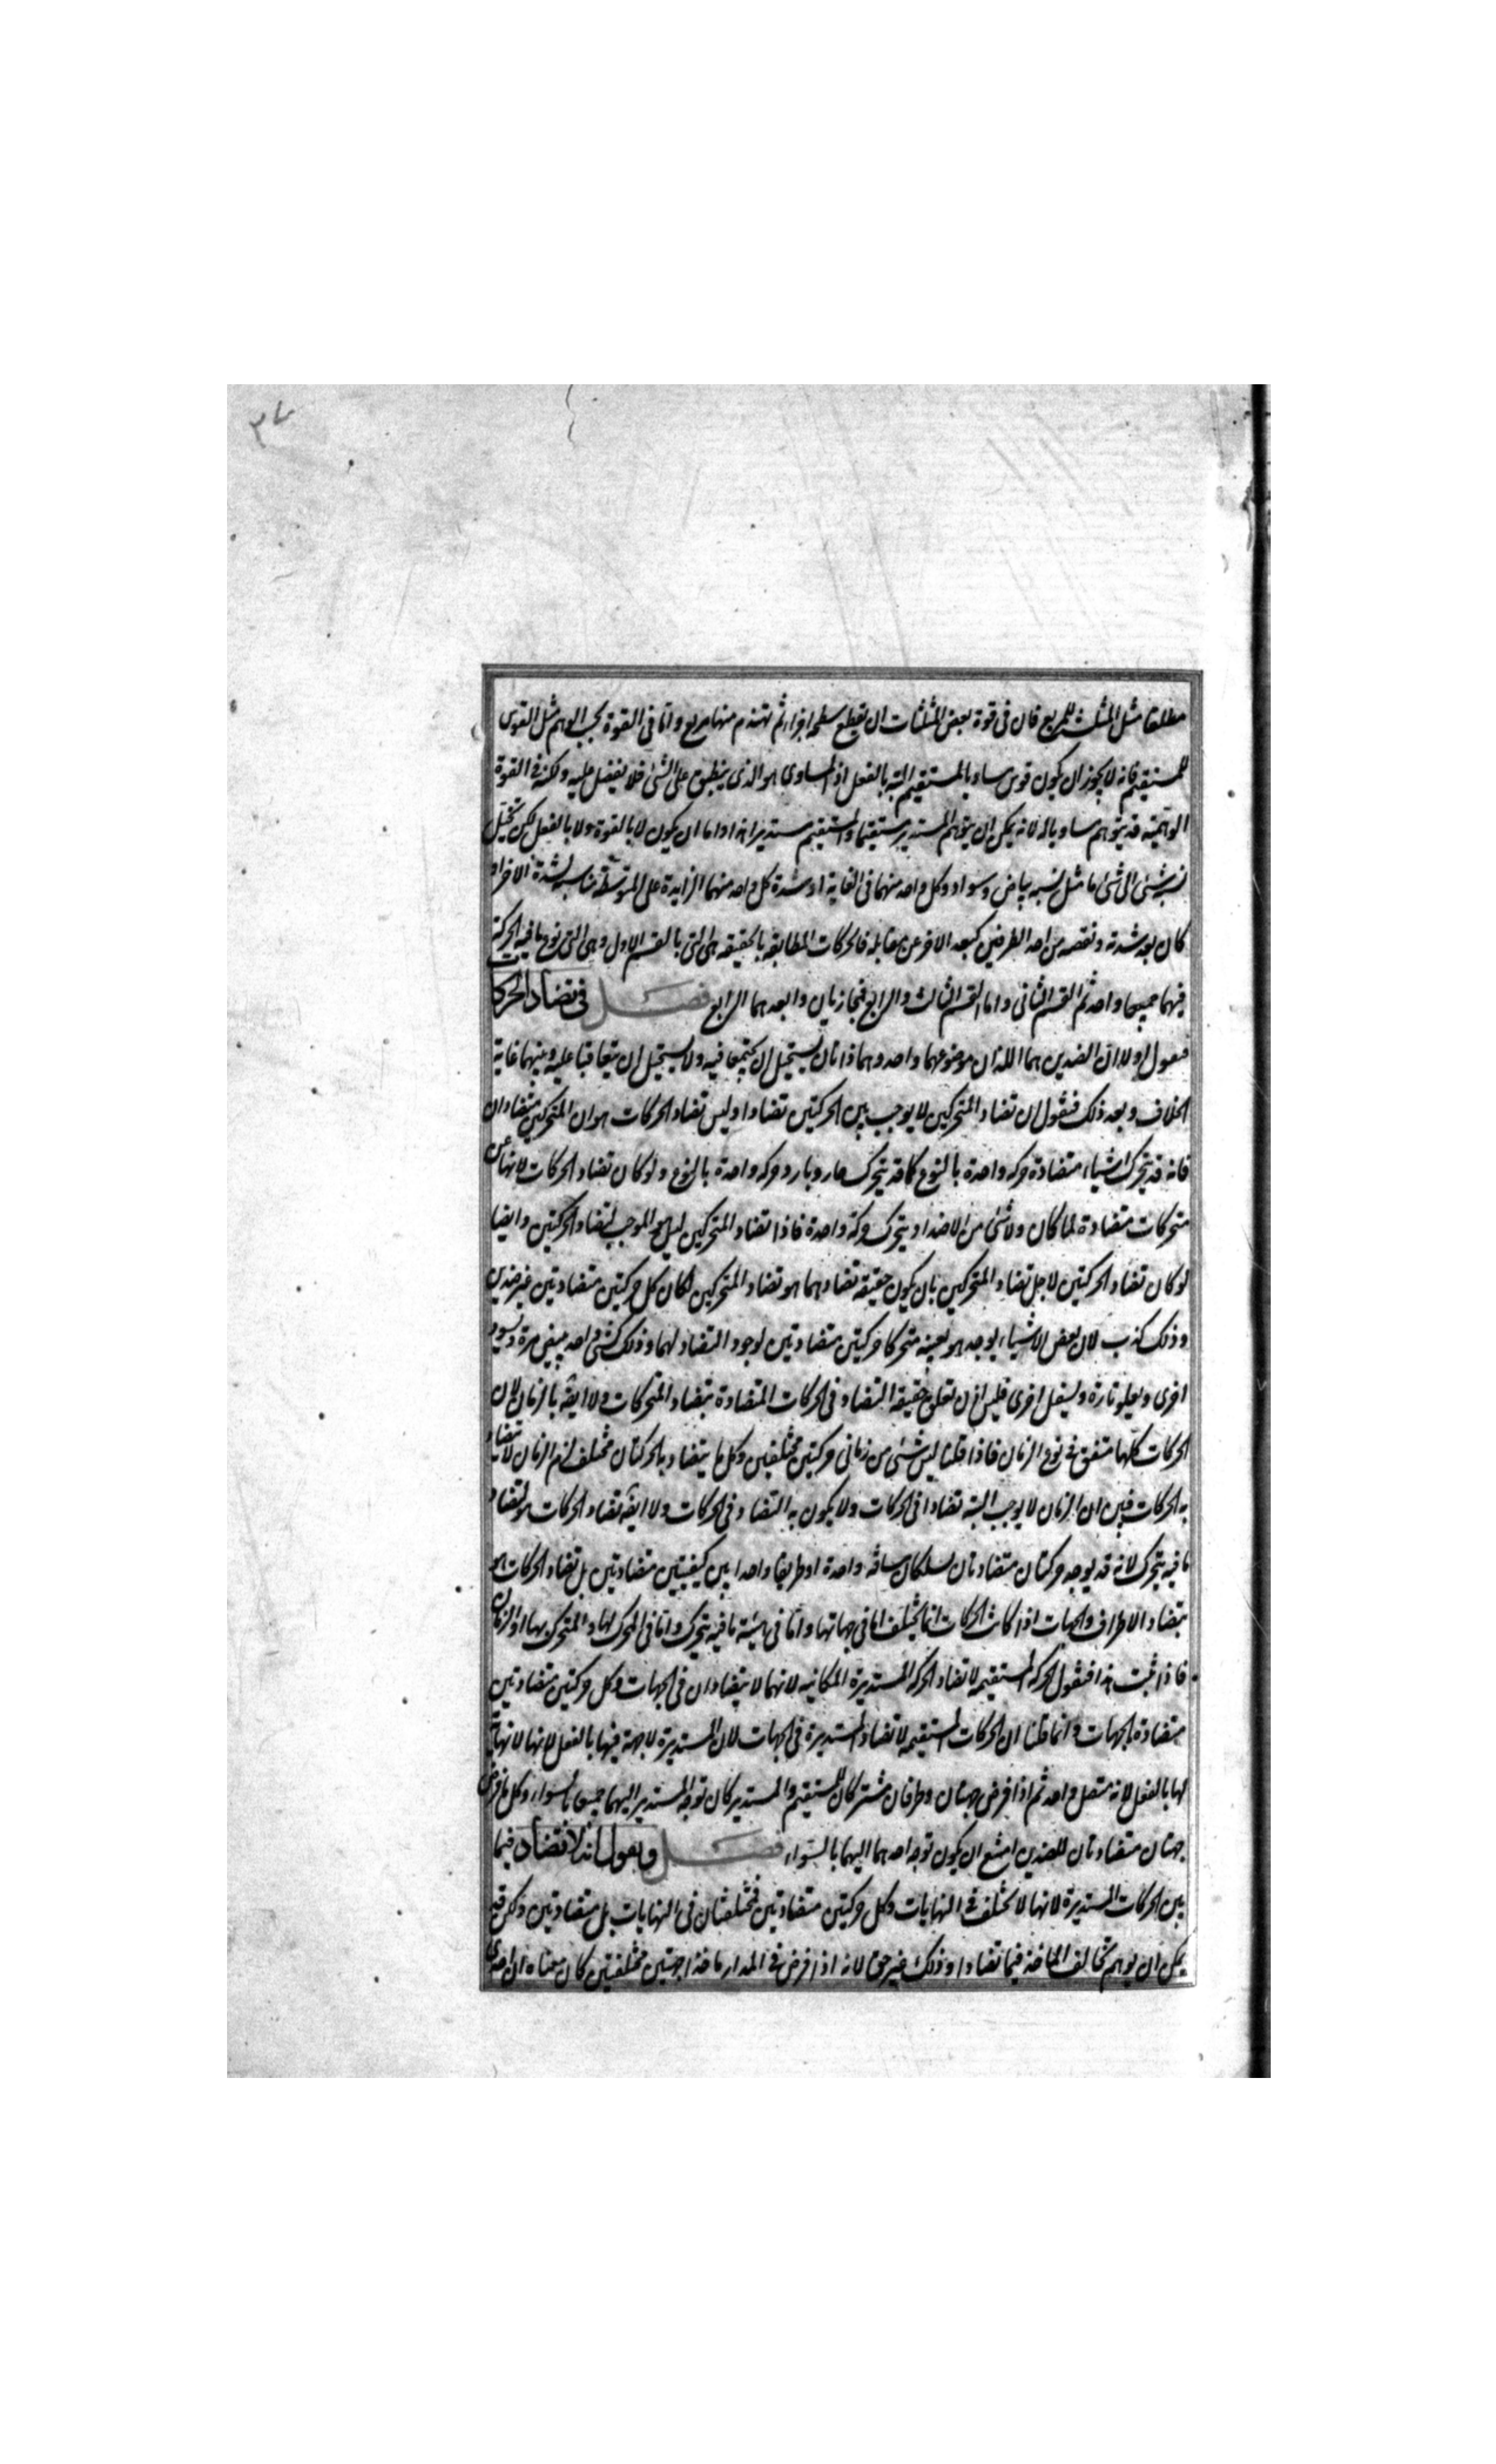 ٣٧
مطلقا مثل المثلث للمربع فان فى قوة بعض المثلثات ان تقطع سطحا اجزاء ثم تهندم منها مربع واما فى القوة بحسب الوهم مثل القوس
للمستقيم فانه لا يجوز ان يكون قوس مساويا لمستقيم البتة بالفعل اذ المساوى هو الذى ينطبق على الشئ فلا يفضل عليه ولكنه فى القوة
الوهمية قد يتوهم مساويا له لانه يمكن ان يتوهم المستدير مستقيما والمستقيم مستديرا هذا واما ان يكون لا بالقوة ولا بالفعل لكن تخيل
نسبة شئ الى شئ ما مثل نسبة بياض وسواد وكل واحد منهما فى الغاية او شدة كل واحد منهما الزايدة على المتوسط مناسبة لشدة الاخر اذ
كان بعد شدته ونقصه من احد الطرفين كبعد الاخر عن مقابله فالحركات المطابقة بالحقيقة هى التى بالقسم الاول وهى التى نوع ما فيه الحركة
فيهما جميعا واحد ثم القسم الثانى واما القسم الثالث والرابع فمجازيان وابعدهما الرابع فصل فى تضاد الحركات
فنقول اولا ان الضدين هما اللذان موضوعهما واحد وهما ذاتان يستحيل ان يجتمعا فيه ولا يستحيل ان يتعاقبا عليه وبينهما غاية
الخلاف وبعد ذلك فنقول ان تضاد المتحركين لا يوجب بين الحركتين تضادا وليس تضاد الحركات هو ان المتحركين متضادان
فانه قد يتحرك اشياء متضادة حركة واحدة بالنوع كما قد يتحرك حار وبارد حركة واحدة بالنوع ولو كان تضاد الحركات لانها عن
متحركات متضادة لما كان ولا شئ من الاضداد يتحرك حركة واحدة فاذا تضاد المتحركين ليس هو الموجب لتضاد الحركتين وايضا
لو كان تضاد الحركتين لاجل تضاد المتحركين بان يكون حقيقة تضادهما هو تضاد المتحركين لكان كل حركتين متضادتين غير ضدين
وذلك كذب لان بعض الاشياء يوجد هو بعينه متحركا حركتين متضادتين لوجود التضاد لهما وذلك كشئ واحد يبيض مرة ويسود
اخرى ويعلو تارة ويسفل اخرى فليس اذن تعلق حقيقة التضاد فى الحركات المتضادة بتضاد المتحركات ولا ايضا بالزمان لان
الحركات كلها متفق فى نوع الزمان فاذا قلنا ليس شئ من زمانى حركتين مختلفين وكل ما يتضاد به الحركتان مختلف لزم الزمان لا يتضاد
به الحركات فبين ان الزمان لا يوجب البتة تضادا فى الحركات ولا يكون به التضاد فى الحركات ولا ايضا تضاد الحركات هو لتضاد
ما فيه يتحرك لانه قد يوجد حركتان متضادتان تسلكان مسافة واحدة او طريقا واحدا بين كيفيتين متضادتين بل تضاد الحركات هو
بتضاد الاطراف والجهات اذا كانت الحركات انما يختلف اما فى جهاتها واما فى هيئة ما فيه يتحرك واما فى المحرك لها والمتحرك بها او الزمان
فاذا ثبت هذا فنقول الحركة المستقيمة لا تضاد الحركة المستديرة المكانية لانهما لا يتضادان فى الجهات وكل حركتين متضادتين
متضادة الجهات وانما قلنا ان الحركات المستقيمة لا تضاد المستديرة فى الجهات لان المستديرة لا جهة فيها بالفعل لانها لا نهاية
لها بالفعل لانه متصل واحد ثم اذا فرض جهتان وطرفان مشتركان للمستقيم والمستدير كان توجه المستدير اليهما جميعا بالسواء وكل ما فرض
جهتان متضادتان للضدين امتنع ان يكون توجه احدهما اليهما بالسواء فصل ونقول انه لا تضاد فيما
بين الحركات المستديرة لانها لا تختلف فى النهايات وكل حركتين متضادتين فمختلفتان فى النهايات بل متضادتين ولكن قد
يمكن ان يوهم تخالف الماخذ فيها تضادا وذلك غير حق لانه اذا فرض فى المدار ماخذا جهتين مختلفتين كان معناه ان احدى